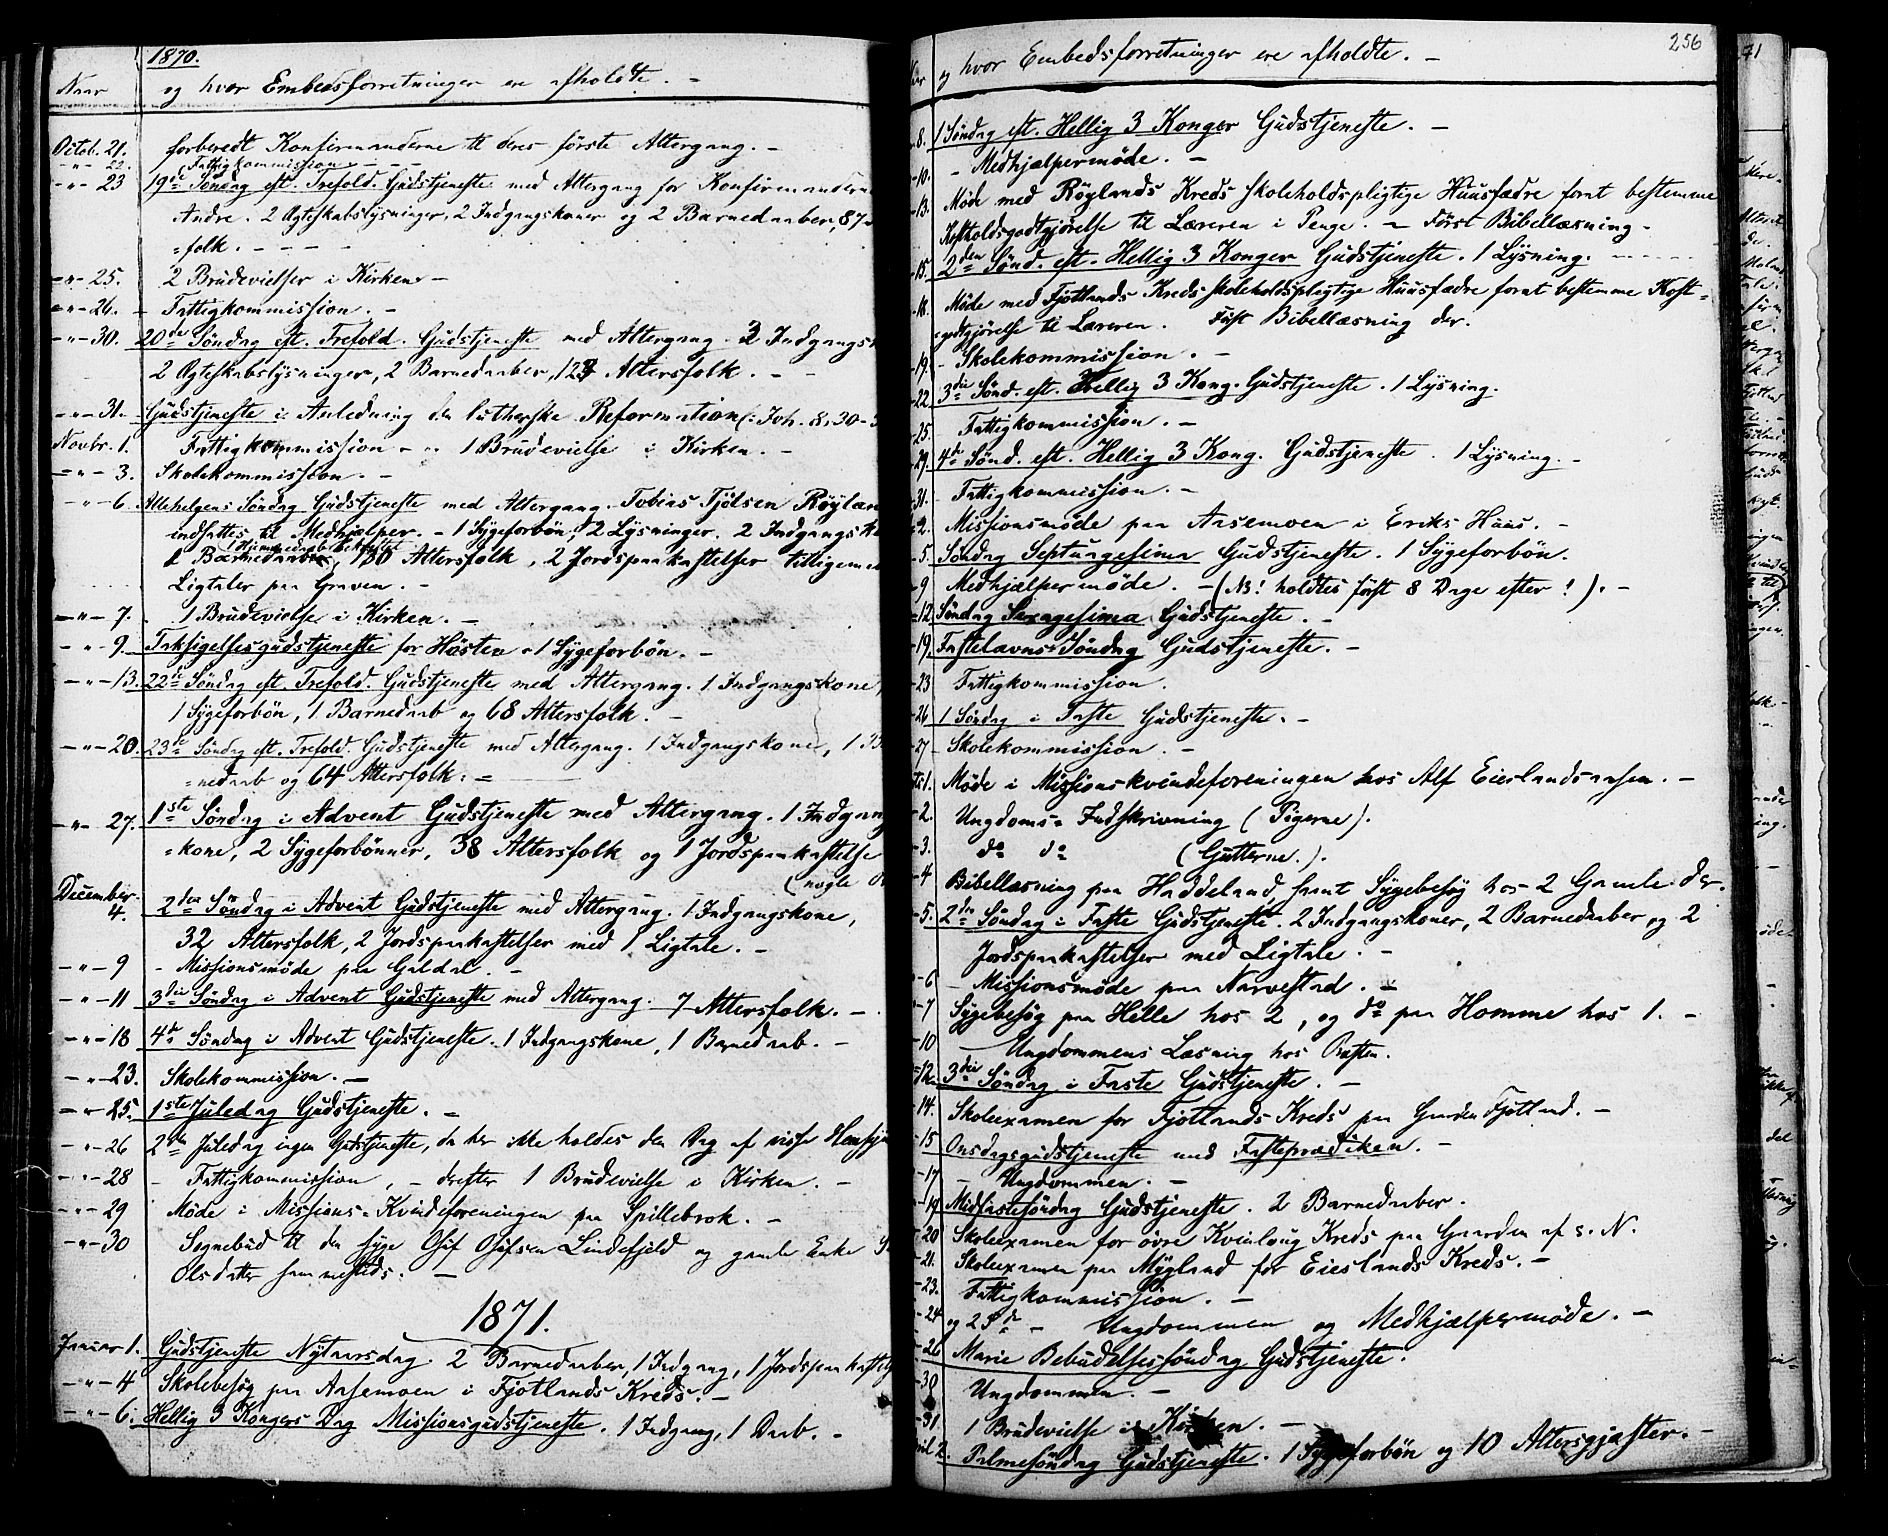 1870.
Naar og hvor Embedsforretninger ere afholdte. -
Octob. 21. forberedt Konfirmanderne til deres første Altergang. -
- " - 22. Fattigkommission - - -
- " - 23 19de Søndag eft. Trefold. Gudstjeneste med Altergang for Konfirmanderne
Andre. 2 Ægteskabslysninger, 2 Indgangskoner og 2 Barnedaaber, 87
=folk. - - - -
- " - 25. 2 Brudevielser i Kirken -
- " - 26. - Fattigkommission. -
- " - 30. 20de Søndag eft. Trefold. Gudstjeneste med Altergang. 3 Indgangs
2 Ægteskabslysninger, 2 Barnedaaber, 123 Altersfolk. - -
- " - 31. Gudstjeneste i Anledning den lutherske Reformation (: Joh. 8, 30-
Novbr. 1. Fattigkommission - " 1 Brudevielse i Kirken. -
- " - 3. Skolekommission. -
- " - 6. Allehelgens Søndag Gudstjeneste med Altergang. Tobias Tjølsen Røylan
indsattes til Medhjælper. - 1 Sygeforbøn, 2 Lysninger. 2 Indgangsk
1 Hjemmedaab bekræftet
2 Barnedaaber, 180 Altersfolk, 2 Jordspaakastelser tilligemed
Ligtaler paa Graven. -
- " - 7. 1 Brudevielse i Kirken. -
- " - 9. Taksigelsesgudstjeneste for Høsten - 1 Sygeforbøn. -
- " - 13. 22de Søndag eft. Trefold. Gudstjeneste med Altergang. 1 Indgangskone,
1 Sygeforbøn, 1 Barnedaab og 68 Altersfolk. -
- " - 20. 23de Søndag eft. Trefold. Gudstjeneste med Altergang. 1 Indgangskone, 1 B
=nedaab og 64 Altersfolk. -
- " - 27. 1ste Søndag i Advent Gudstjeneste med Altergang. 1 Indgang
=kone, 2 Sygeforbønner, 38 Altersfolk og 1 Jordspaakastelse
(nogle
December 4. 2den Søndag i Advent Gudstjeneste med Altergang. 1 Indgangskone,
32 Altersfolk, 2 Jordspaakastelser med 1 Ligtale. -
- " - 9 - Missionsmøde paa Galdal. -
- " - 11 3die Søndag i Advent Gudstjeneste med Altergang. 7 Altersfolk. -
- " - 18 4de Søndag i Advent Gudstjeneste. 1 Indgangskone, 1 Barnedaab. -
- " - 23. Skolekommission. -
- " - 25. 1ste Juledag Gudstjeneste. -
- " - 26 2den Juledag ingen Gudstjeneste, da her ikke holdes den Dag af visse Hensyn
- " - 28 - Fattigkommission, - derefter 1 Brudevielse i Kirken. -
- " - 29 Møde i Missions-Kvindeforeningen paa Spillebrok. -
- " - 30 Sognebud til den syge Osuf Osufsen Lindefjeld og gamle Enke
Olsdatter sammesteds. -
1871.
Januar 1. Gudstjeneste Nytaarsdag. 2 Barnedaaber, 1 Indgang, 1 Jordspaakastelse
- " - 4 Skolebesøg paa Aasemoen i Fjotlands Kreds. -
- " - 6. Hellig 3 Kongers Dag Missionsgudstjeneste. 1 Indgang, 1 Daab. -
256
og hvor Embedsforretninger ere afholdte. -
8. 1 Søndag eft. Hellig 3 Konger Gudstjeneste. -
-10. - Medhjælpermøde. -
-13. Møde med Røylands Kreds skoleholdspligtige Huusfædre forat bestemme
Kostholdsgodtgjørelse til Læreren i Penge. - Først Bibellæsning -
-15. 2den Sønd. eft. Hellig 3 Konger Gudstjeneste. 1 Lysning. - - -
-18. Møde med Fjotlands Kreds skoleholdspligtige Huusfædre forat bestemme Kost=
=godtgjørelse til Læreren. Først Bibellæsning der.
-19. - Skolekommission. -
-22. 3die Sønd. eft. Hellig 3 Kong. Gudstjeneste. 1 Lysning.
-25. Fattigkommission. -
-29. 4de Sønd. eft. Hellig 3 Kong. Gudstjeneste. 1 Lysning. -
-31. - Fattigkommission. -
-2. Missionsmøde paa Aasemoen i Eriks Huus. -
-5. Søndag Septuagesima Gudstjeneste. 1 Sygeforbøn.
-9 Medhjælpermøde. - (NB! holdtes først 8 Dage efter!). -
-12. Søndag Sexagesima Gudstjeneste. -
-19. Fastelavns-Søndag Gudstjeneste. -
-23 Fattigkommission.
-26 1 Søndag i Faste Gudstjeneste. -
-27 - Skolekommission. -
ts 1. Møde i Missionskvindeforeningen hos Alf Eieslandsaasen. -
-2. Ungdoms-Indskrivning (Pigerne).
-3. do do (Gutterne.).
-4 Bibellæsning paa Haddeland, samt Sygebesøg hos 2 Gamle der.
-5. 2den Søndag i Faste Gudstjeneste. 2 Indgangskoner, 2 Barnedaaber og 2
Jordspaakastelser med Ligtale. -
-6 - Missionsmøde paa Narvestad. -
-7 Sygebesøg paa Helle hos 2, og do paa Homme hos 1. -
-10 Ungdommens Læsning hos Præsten.
-12. 3die Søndag i Faste Gudstjeneste. -
-14. Skoleexamen for Fjotlands Kreds paa Gaarden Fjotland. -
-15 Onsdagsgudstjeneste med Fasteprædiken. -
-17 - Ungdommen. -
-19 Midfastesøndag Gudstjeneste. 2 Barnedaaber.
-20 Skoleexamen for øvre Kvinlaug Kreds paa Gaarden af s. N.
-21. Skoleexamen paa Mygland for Eieslands Kreds. -
-23. Fattigkommission. -
-24 og 25de - Ungdommen og Medhjælpermøde. -
-26 Marie Bebudelsessøndag Gudstjeneste.
-30 Ungdommen. -
-31. 1 Brudevielse i Kirken. -
ril 2. Palmesøndag Gudstjeneste. 1 Sygeforbøn og 10 Altersgjæster. -
71